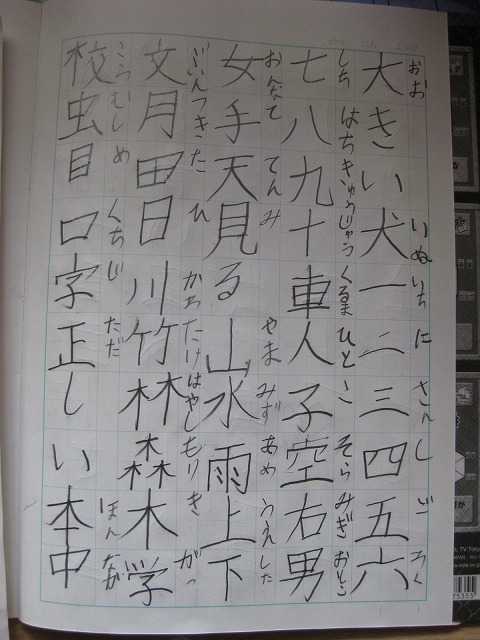 大きい犬一二三四五六
おお いぬ いち に さん し ご ろく
七八九十車人子空右男
しち はち きゅう じゅう くるま ひと こ そら みぎ おとこ
女手天見る山水雨上下
おんな て てん み やま みず あめ うえ した
文月田日川竹林森木学
ぶん つき た ひ かわ たけ はやし もり き がっ
校虫目口字正しい本中
こう むし め くち じ ただ ほん なか